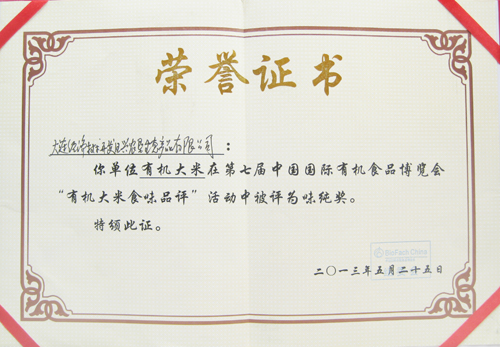 荣誉证书
大连
有限公司：
你单位有机大米在第七届中国国际有机食品博览会
“有机大米食味品评”活动中被评为味纯奖。
特颁此证。
BioFach China
二〇一三年五月二十五日